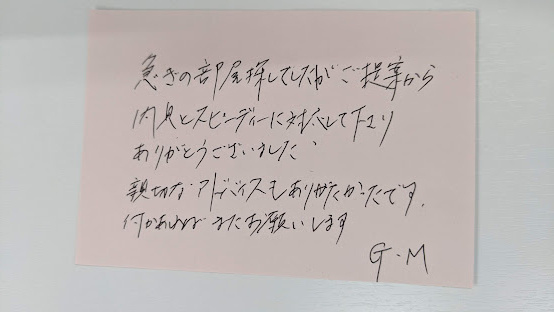 急ぎの部屋探しでしたがご提案から
内見とスピーディーに対応して下さり
ありがとうございました。
親切なアドバイスもありがたかったです。
何かあればまたお願いします
G.M